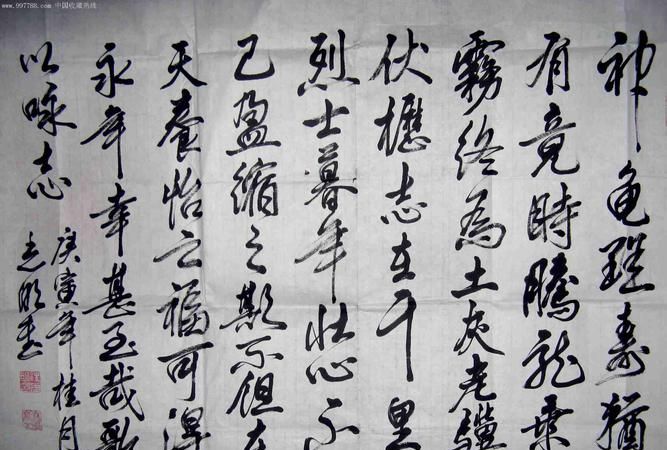 www.997788.com 中国收藏热线
神龟雖寿猶
有竟時騰龙乘
霧终為土灰老驥
伏櫪志在千里
烈士暮年壮心不
已盈缩之期不但在
天養怡之福可得
永年幸甚至哉歌
以咏志
庚寅年桂月